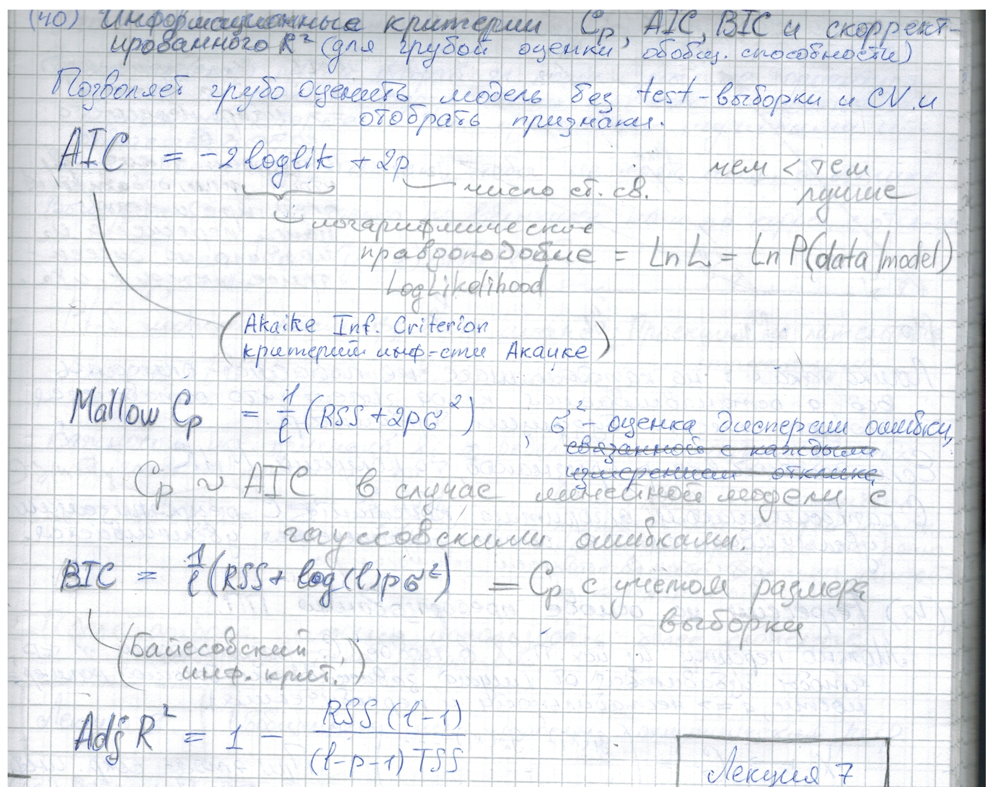 (40) Информационные критерии Cp, AIC, BIC и скоррект-
ированного R² (для грубой оценки обобщ. способности)
Позволяет грубо оценить модель без test-выборки и CV и
отобрать признаки.
AIC = -2 loglik + 2p
чем < тем
лучше
число ст. св.
логарифмическое
правдоподобие = Ln L = Ln P(data/model)
LogLikelihood
(Akaike Inf. Criterion
критерий инф-сти Акаике)
Mallow Cp = 1/l (RSS + 2pσ²) , σ² - оценка дисперсии ошибки,
связанной с каждым
измерением отклика
Cp ~ AIC в случае линейной модели с
гауссовскими ошибками.
BIC = 1/l (RSS + log(l)pσ²) = Cp с учётом размера
выборки
(Байесовский
инф. крит.)
Adj R² = 1 - RSS (l-1) / (l-p-1) TSS
Лекция 7